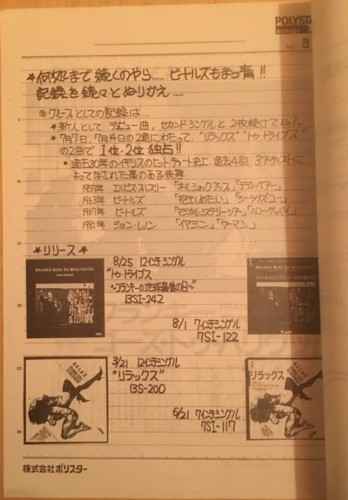 POLYST
No. 3
★何処まで続くのやら..... ビートルズもまっ青!!
記録を続々とぬりかえ.....
◎グループとしての記録は
★新人として デビュー曲, セカンドシングルと 2枚続けてNo.1。
★7月7日, 7月14日の2週にわたって、"リラックス" "トゥ・トライブス"
の2曲で 1位・2位 独占!!
★過去30年のイギリスのヒットチャート史上 過去4回 3アーティストに
よって
1957年 エルビス・プレスリー
1963年 ビートルズ 「抱きしめたい」「シー・ラヴズ・ユー」
1967年 ビートルズ 「マジカル・ミステリー・ツアー」「ハロー・グッバイ」
1981年 ジョン・レノン 「イマジン」「ウーマン」
★リリース★
8/25 12インチシングル
"トゥ・トライブス
〜フランキーの地球最後の日〜"
13SI-242
8/1 7インチシングル
7SI-122
3/21 12インチシングル
"リラックス"
13S-200
6/21 7インチシングル
7SI-117
FRANKIE GOES TO HOLLYWOOD
RELAX
リラックス
株式会社ポリスター